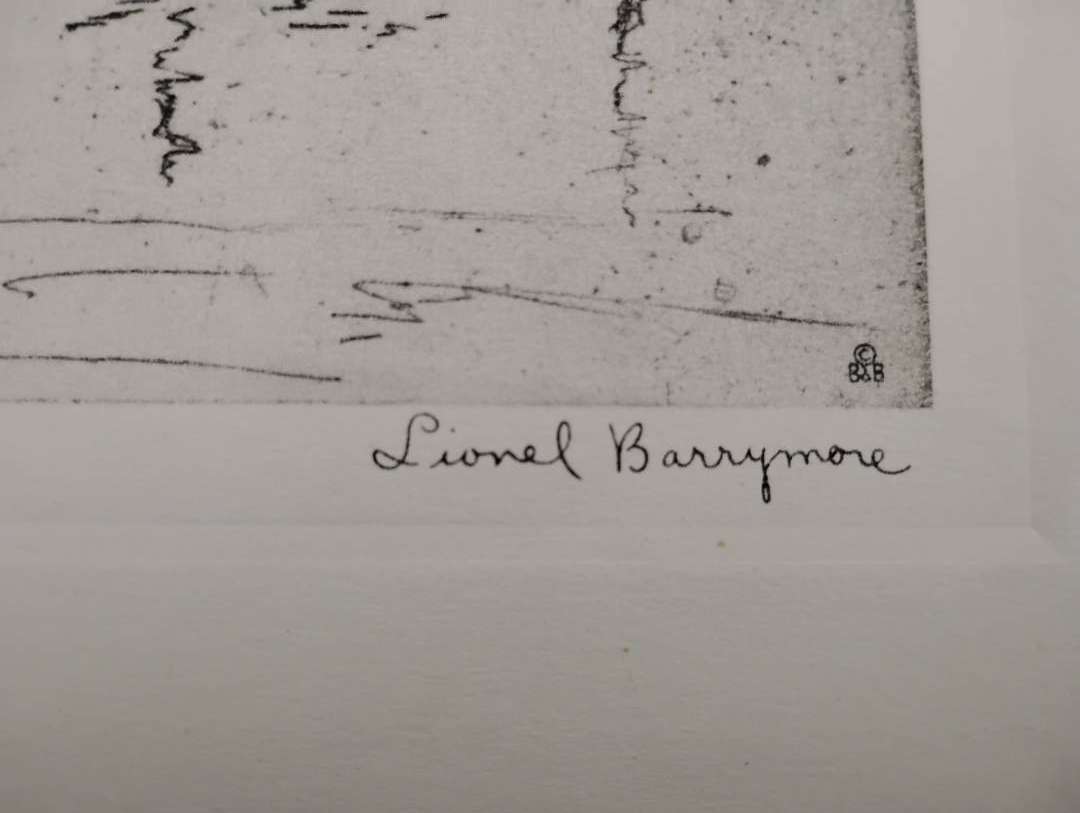 ©
BAB
Lionel Barrymore